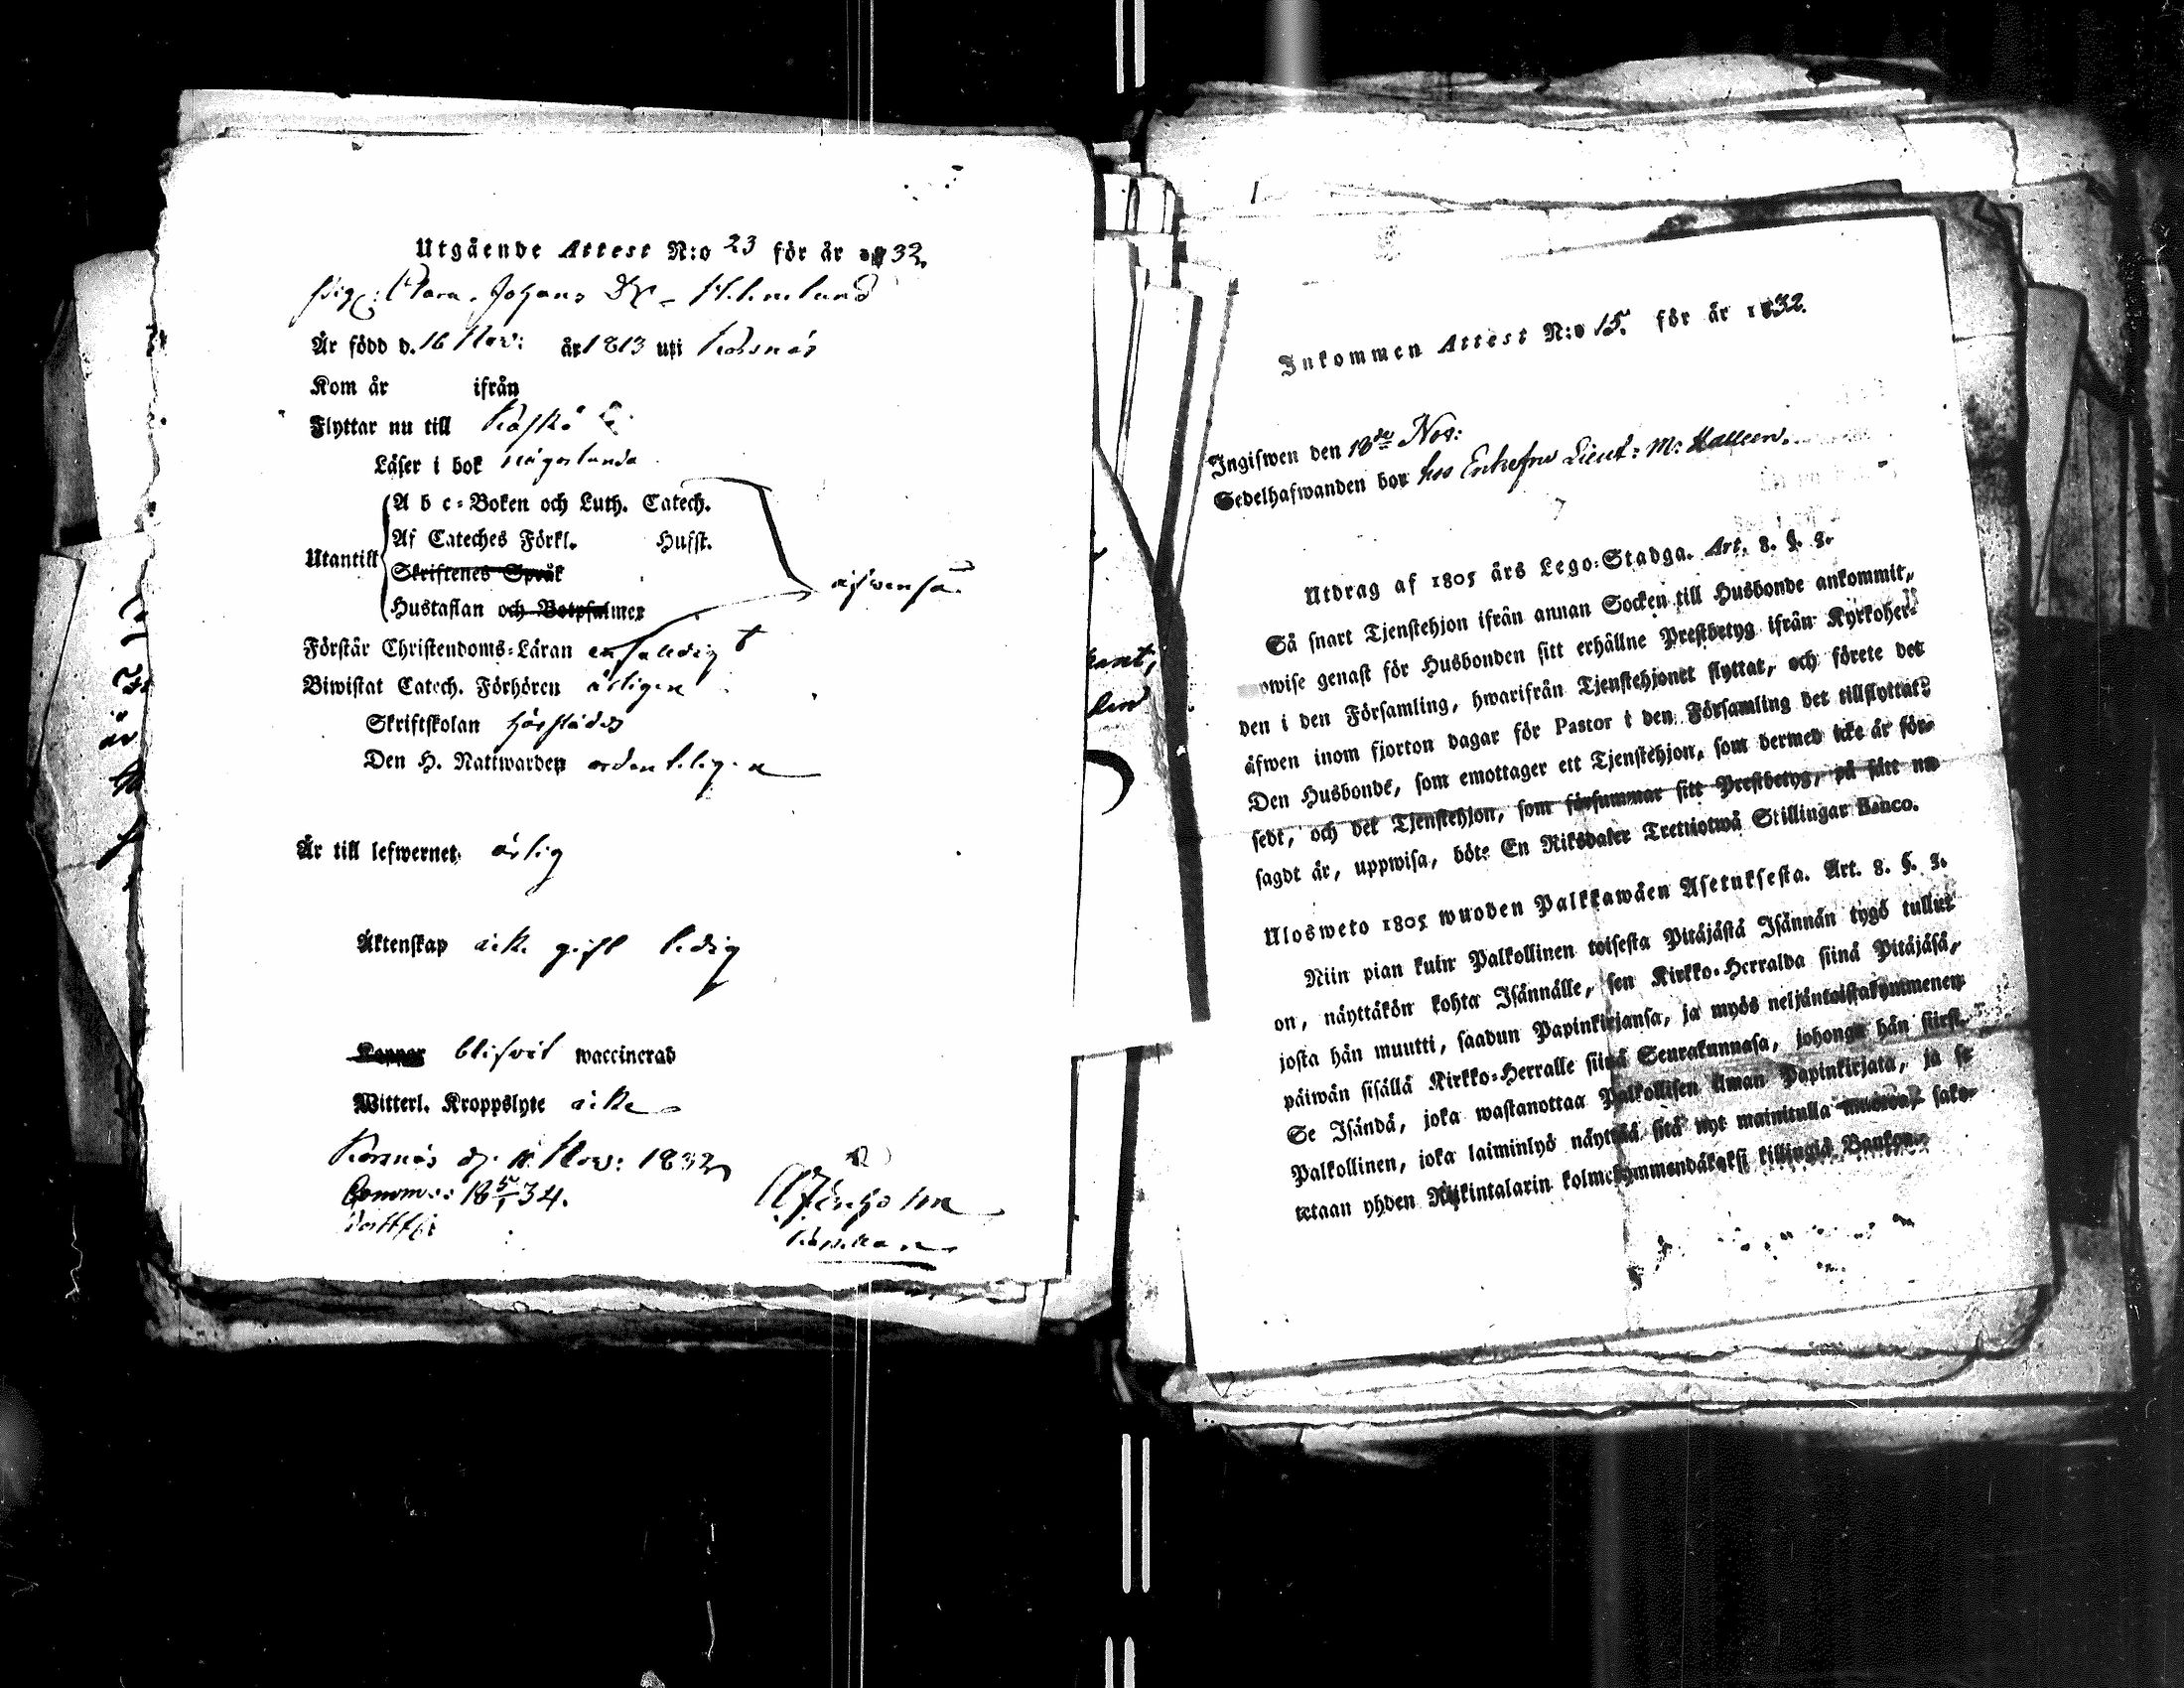 Utgående Attest N:o 23 för år 1832.
Pig: Clara Johans Dr
Är född d. 16 Nov: år 1813 uti Korsnäs
Kom år ifrån
Flyttar nu till Kaskö
Läser i bok någorlunda
A b c-Boken och Luth. Catech.
Af Cateches Förkl. Husst.
Utantill
Skriftenes Språk
Hustaflan och Botpsalmer
äfvenså
Förstår Christendoms-Läran
Biwistat Catech. Förhören årligen
Skriftskolan härstädes
Den H. Nattwarden ordentligen
Är till lefwernet ärlig
Äktenskap icke gift ledig
Koppor blifvit waccinerad
Witterl. Kroppslyte icke
Korsnäs d. Nov: 1832
18 5/1 34.
Inkommen Attest N:o 15. för år 1832.
Ingifwen den 18de Nov:
Sedelhafwanden bor hos Enkefru Lieut: M:
Utdrag af 1805 års Lego-Stadga. Art. 8. §. 9.
Så snart Tjenstehjon ifrån annan Socken till Husbonde ankommit,
wise genast för Husbonden sitt erhållne Prestbetyg ifrån Kyrkoher-
den i den Församling, hwarifrån Tjenstehjonet flyttat, och förete det
äfwen inom fjorton dagar för Pastor i den Församling det tillflyttat.
Den Husbonde, som emottager ett Tjenstehjon, som dermed icke är för-
sedt, och det Tjenstehjon, som försummar sitt Prestbetyg, på sätt nu
sagdt är, uppwisa, böte En Riksdaler Trettiotwå Skillingar Banco.
Ulosweto 1805 wuoden Palkkawäen Asetuksesta. Art. 8. §. 9.
Niin pian kuin Palkollinen toisesta Pitäjästä Isännän tygö tullut
on, näyttäkön kohta Isännälle, sen Kirkko-Herralda siinä Pitäjäsä,
josta hän muutti, saadun Papinkirjansa, ja myös neljäntoistakymmenen
päiwän sisällä Kirkko-Herralle siinä Seurakunnasa, johonga hän siirsi.
Se Isändä, joka wastanottaa Palkollisen ilman Papinkirjata, ja se
Palkollinen, joka laiminlyö näyttää sitä nyt mainitulla muowoa, sako-
tetaan yhden Riikintalarin kolmekymmendäkaksi killingiä Bankos.